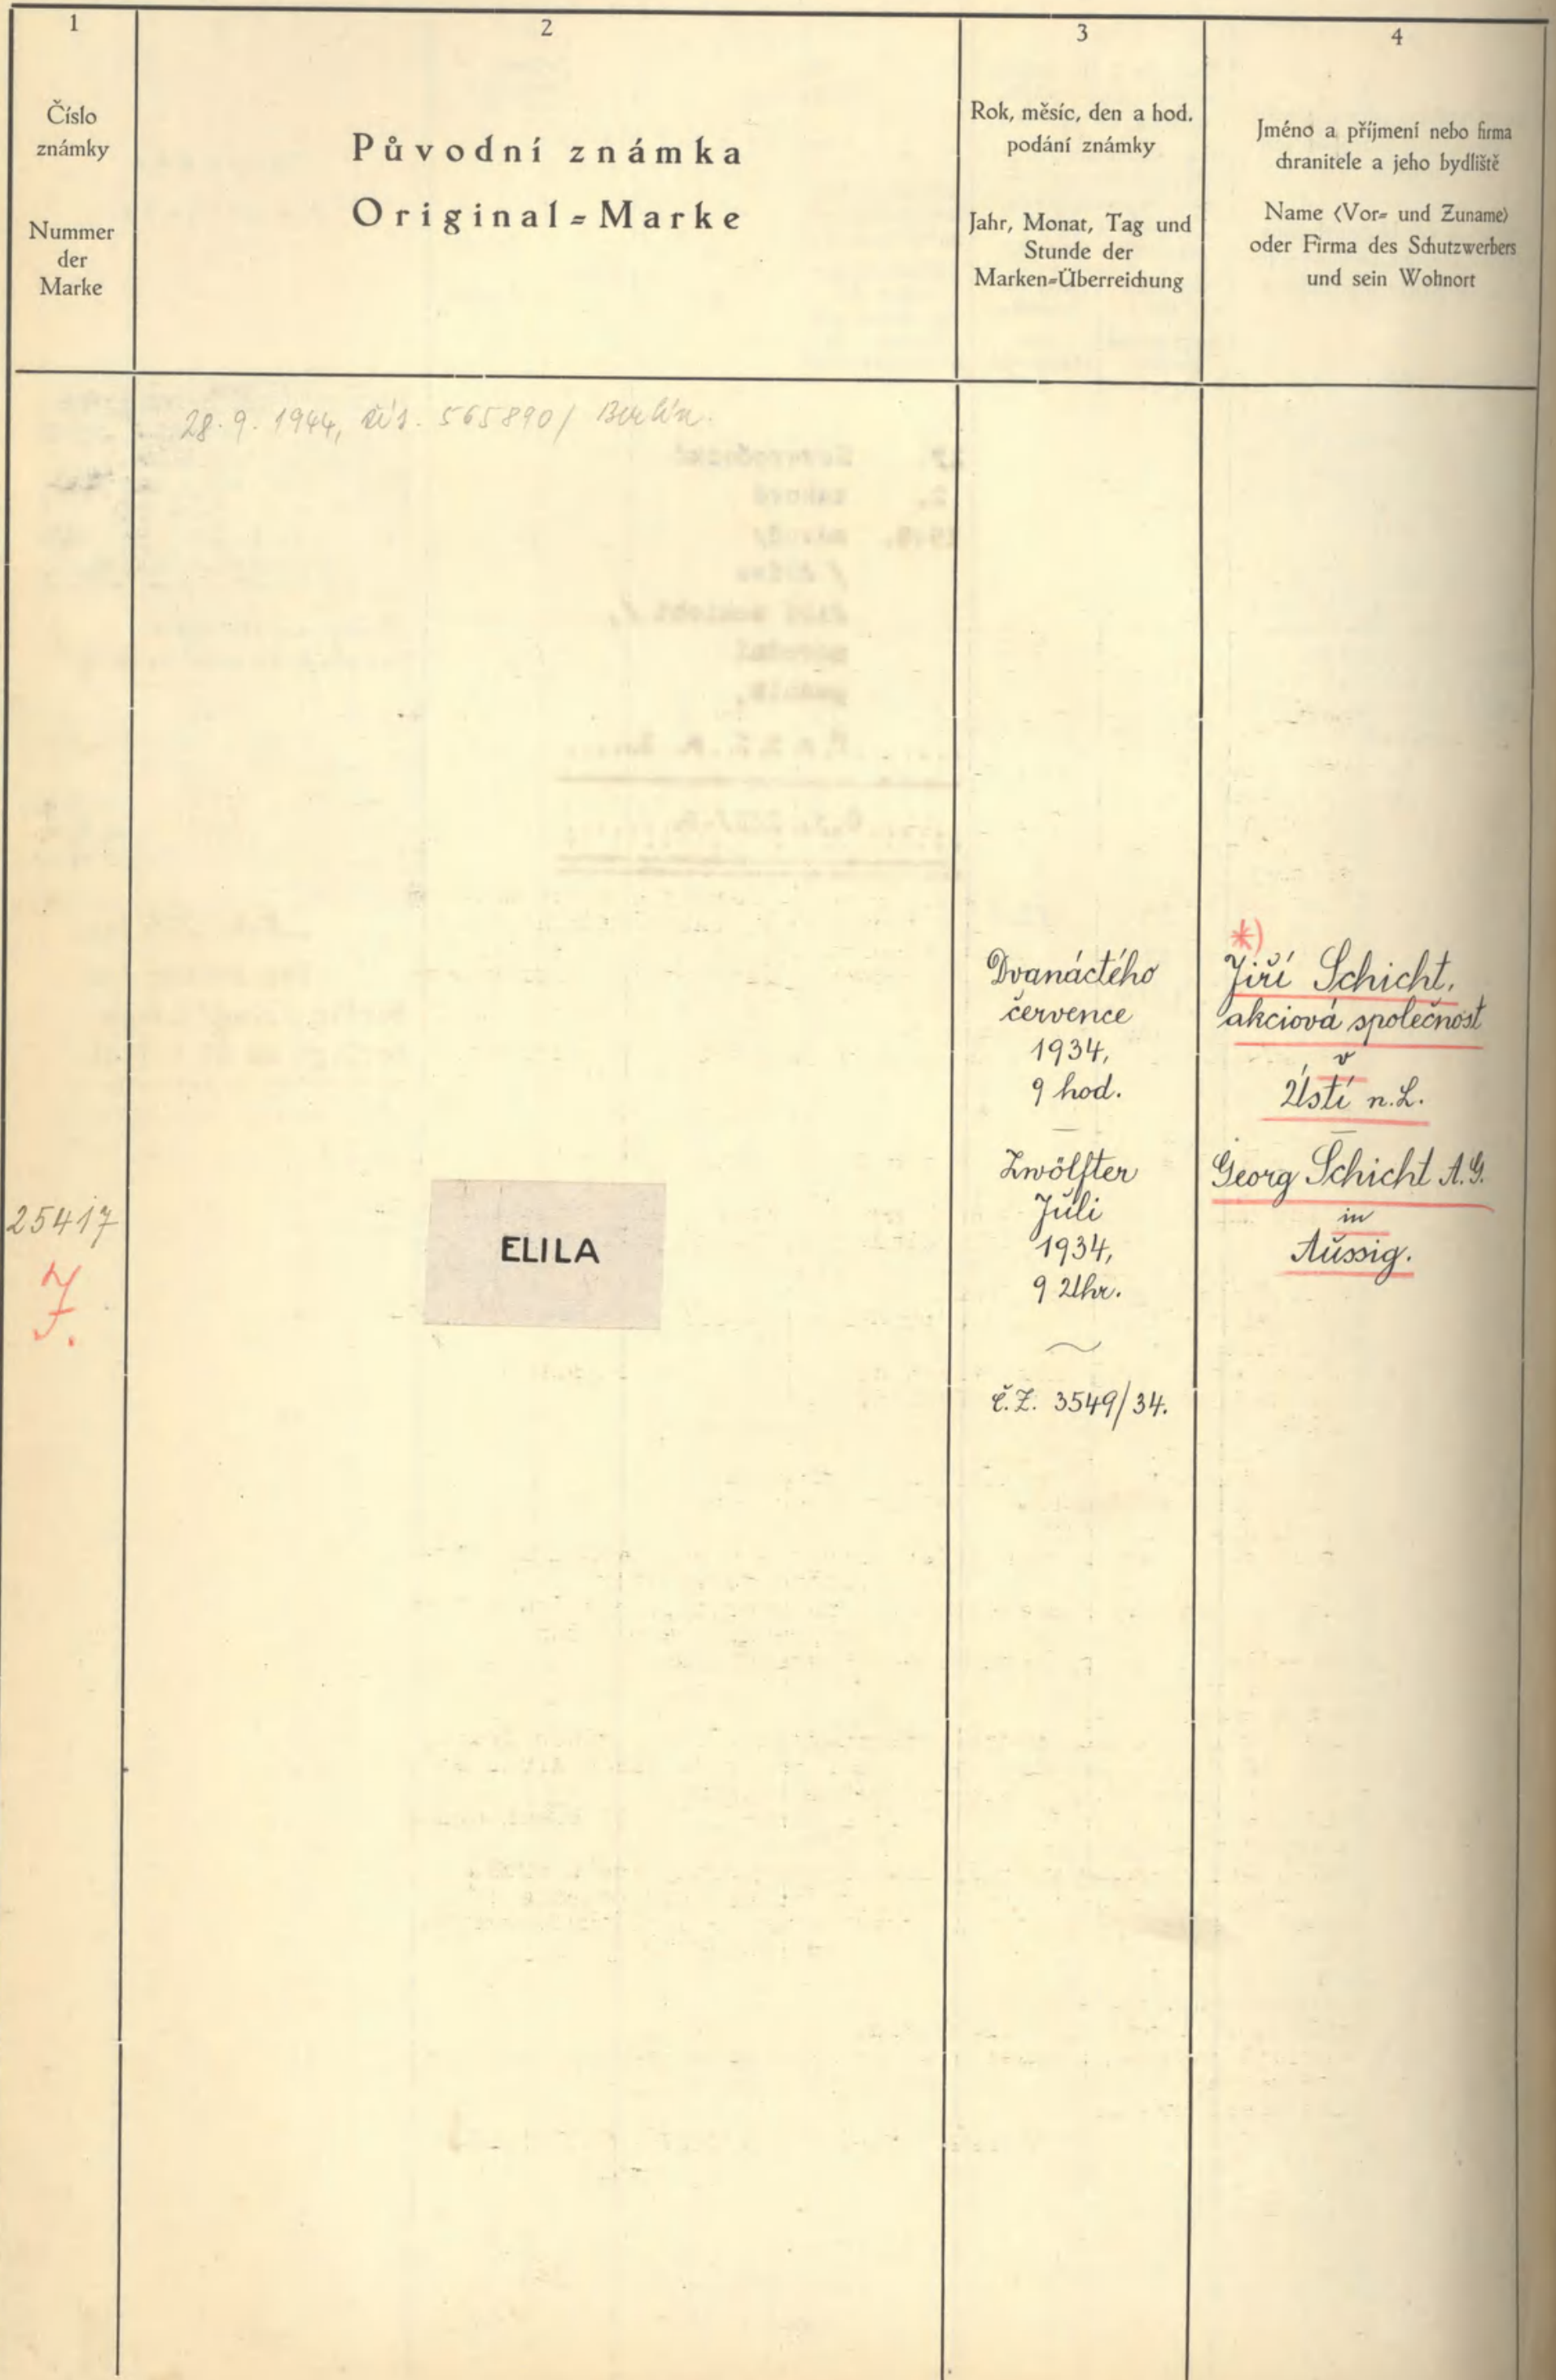 1
Číslo
známky
Nummer
der
Marke
2
Původní známka
Original-Marke
3
Rok, měsíc, den a hod.
podání známky
Jahr, Monat, Tag und
Stunde der
Marken-Überreichung
4
Jméno a příjmení nebo firma
chranitele a jeho bydliště
Name (Vor- und Zuname)
oder Firma des Schutzwerbers
und sein Wohnort
28. 9. 1944, 565890/ Berlín.
25417
7.
ELILA
Dvanáctého
července
1934,
9 hod.
Zwölfter
Juli
1934,
9 Uhr.
č.Z. 3549/34.
*)
Jiří Schicht,
akciová společnost
v
Ústí n.L.
Georg Schicht A.G.
in
Aussig.